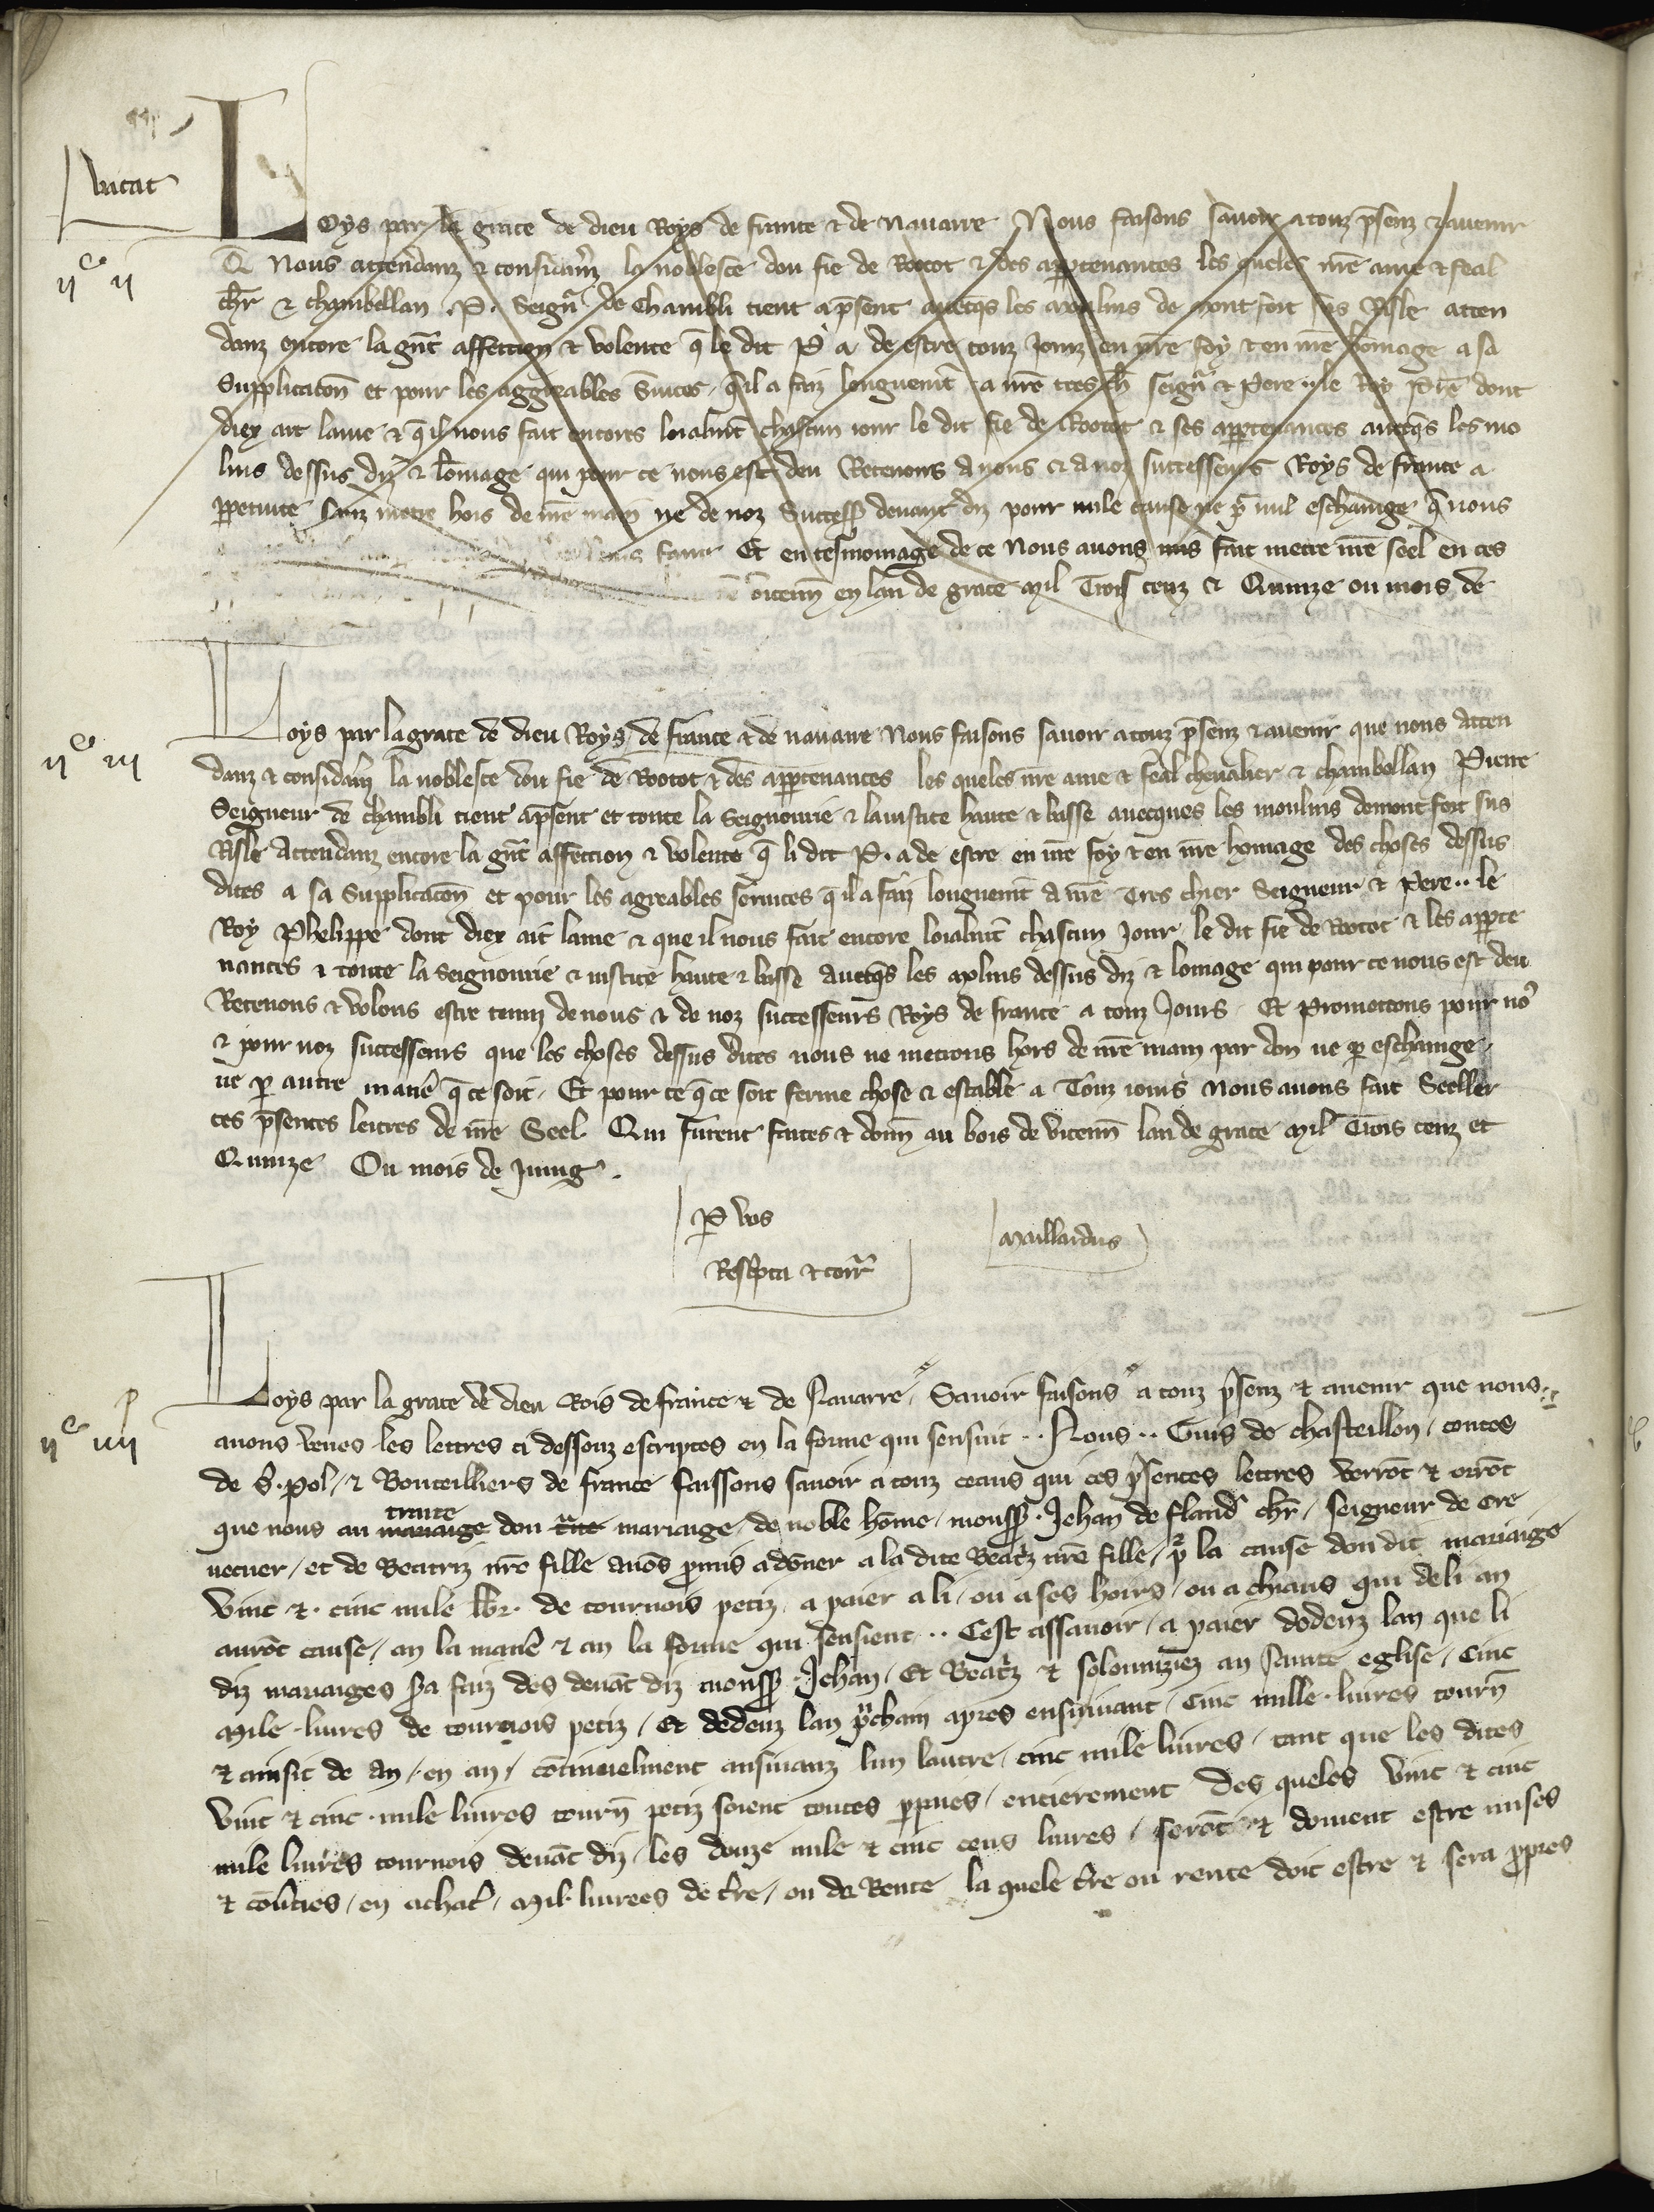 vacat
Loys par la grace de dieu Roys de france & de nauarre Nous faisons sauoir a touz p̄senz & auenir
Q̄ Nous attendanz & considam̄z la noblesce dou fie de Rootot & des app̱tenances les queles nr̄e ame & feal
ijᶜ ij
chr̄ & chambellan .P. Seign̄r de Chambli tient a p̄sent auecq̄s les moulins de mont fort sus Risle atten
danz encore la gn̄t affection & volente q̄ le dit P̱ a de estre touz Jourz en nr̄e foy & en nr̄e homage a sa
Supplicatōn et pour les aggreables s̄uices q̄ il a faiz longuem̄t a nr̄e tres ch̄ seign̄r & Pere .. le Roy Ph̄e dont
diex ait lame & q̄ il nous fait encores loialm̄t chascun iour le dit fie de Rootot & ses app̱tenances auecq̄s les mo
lins dessus diz & lomage qui pour ce nous est deu Retenons a nous & a noz successeurs Roys de france a
pp̱etuite sanz metre hors de nr̄e main ne de noz Success̱ deuant diz pour nule cause ne pr̄ nul eschainge q̄ nous
faur Et en tesmoinage de ce Nous auons mis fait metre nr̄e seel en ces
en lan de grace Mil Trois cenz & Quinze ou mois de
ijᶜ iij
Loys par la grace de dieu Roys de france & de nauarre Nous faisons sauoir a touz p̄senz & auenir que nous atten
danz & considam̄z la noblesce dou fie de Rootot & des app̱tenances les queles nr̄e ame & feal cheualier & chambellan Pierre
Seigneur de chambli tient a p̄sent et toute la Seignourie & la iustice haute & basse auecques les moulins de mont fort sus
Risle Attendanz encore la gn̄t affection & volente q̄ li dit P. a de estre en nr̄e foy & en nr̄e homage des choses dessus
dites a sa Supplicatōn et pour les agreables seruices q̄ il a faiz longuem̄t a nr̄e Tres chier Seigneur & Pere .. le
Roy Phelippe dont diex ait lame & que il nous fait encore loialm̄t chascun Jour le dit fie de Rootot & les app̱te
nances & toute la Seignourie & iustice haute & basse auecq̄s les molins dessus diz & lomage qui pour ce nous est deu
Retenons & volons estre tenuz de nous & de noz successeurs Roys de france a touz Jours . Et Promettons pour no᷒
& pour noz successeurs que les choses dessus dites nous ne metrons hors de nr̄e main par don ne p̱ eschainge
ne p̱ autre manie᷑ q̄ ce soit . Et pour ce q̄ ce soit ferme chose & estable a Touz iours Nous auons fait Seeller
ces p̄sentes lettres de nr̄e Seel Qui furent faites & donn̄ au bois de vicenn̄ lan de grace Mil Trois cenz et
Quinze Ou mois de Juing .
P̱ vos
Resc̱pta & corr̄
Maillardus
ijᶜ iiij
Loys par la grace de dieu Rois de france & de Nauarre Sauoir faisons a touz p̄senz & auenir que nous
auons veues les lettres ci dessouz escriptes en la forme qui sensuit .. Nous .. Guis de chasteillon / contes
de S̄. Pol / & Bouteilliers de france faissons sauoir a touz ceaus qui ces p̄sentes lettres verrōt & orrōt
que nous au mariaige traitie dou mariaige / de noble hōme / monss̱ . Jehan de fland᷑ chr̄ / seigneur de Cre
uecuer / et de Beatriz nr̄e fille auōs ꝓmis a dōner a la dite Beat᷑z nr̄e fille / pr̄ la cause dou dit mariaige
Vint & . cinc mile lb̄r . de tournois petiz / a paier a li / ou a ses hoirs / ou a chiaus qui de li an
aurōt cause / an la manie᷑ & an la forme qui sensient .. Cest assauoir / a paier dedenz lan que li
diz mariaiges s̱a faiz des deuāt diz monss̱ . Jehan / Et Beat᷑z & solennizīez an sainte eglise / Cinc
Mile . liures de tournois petiz / Et dedenz lan ꝓchain apres ensiuuant / Cinc mille . liures tourn̄
& ainsit de an / en an / cōtinuelment ansiuanz lun lautre / cinc mile liures / tant que les dites
vint & cinc . mile liures tourn̄ petiz soient toutes p̱paiees / entierement Des queles vint & cinc
mile liures tournois deuāt diz / les douze mile & cinc cens liures / serōt & doiuent estre mises
& cōuties / en achat / Mil . liurees de t̄re / ou de Rente la quele t̄re ou rente doit estre & sera ꝓpres